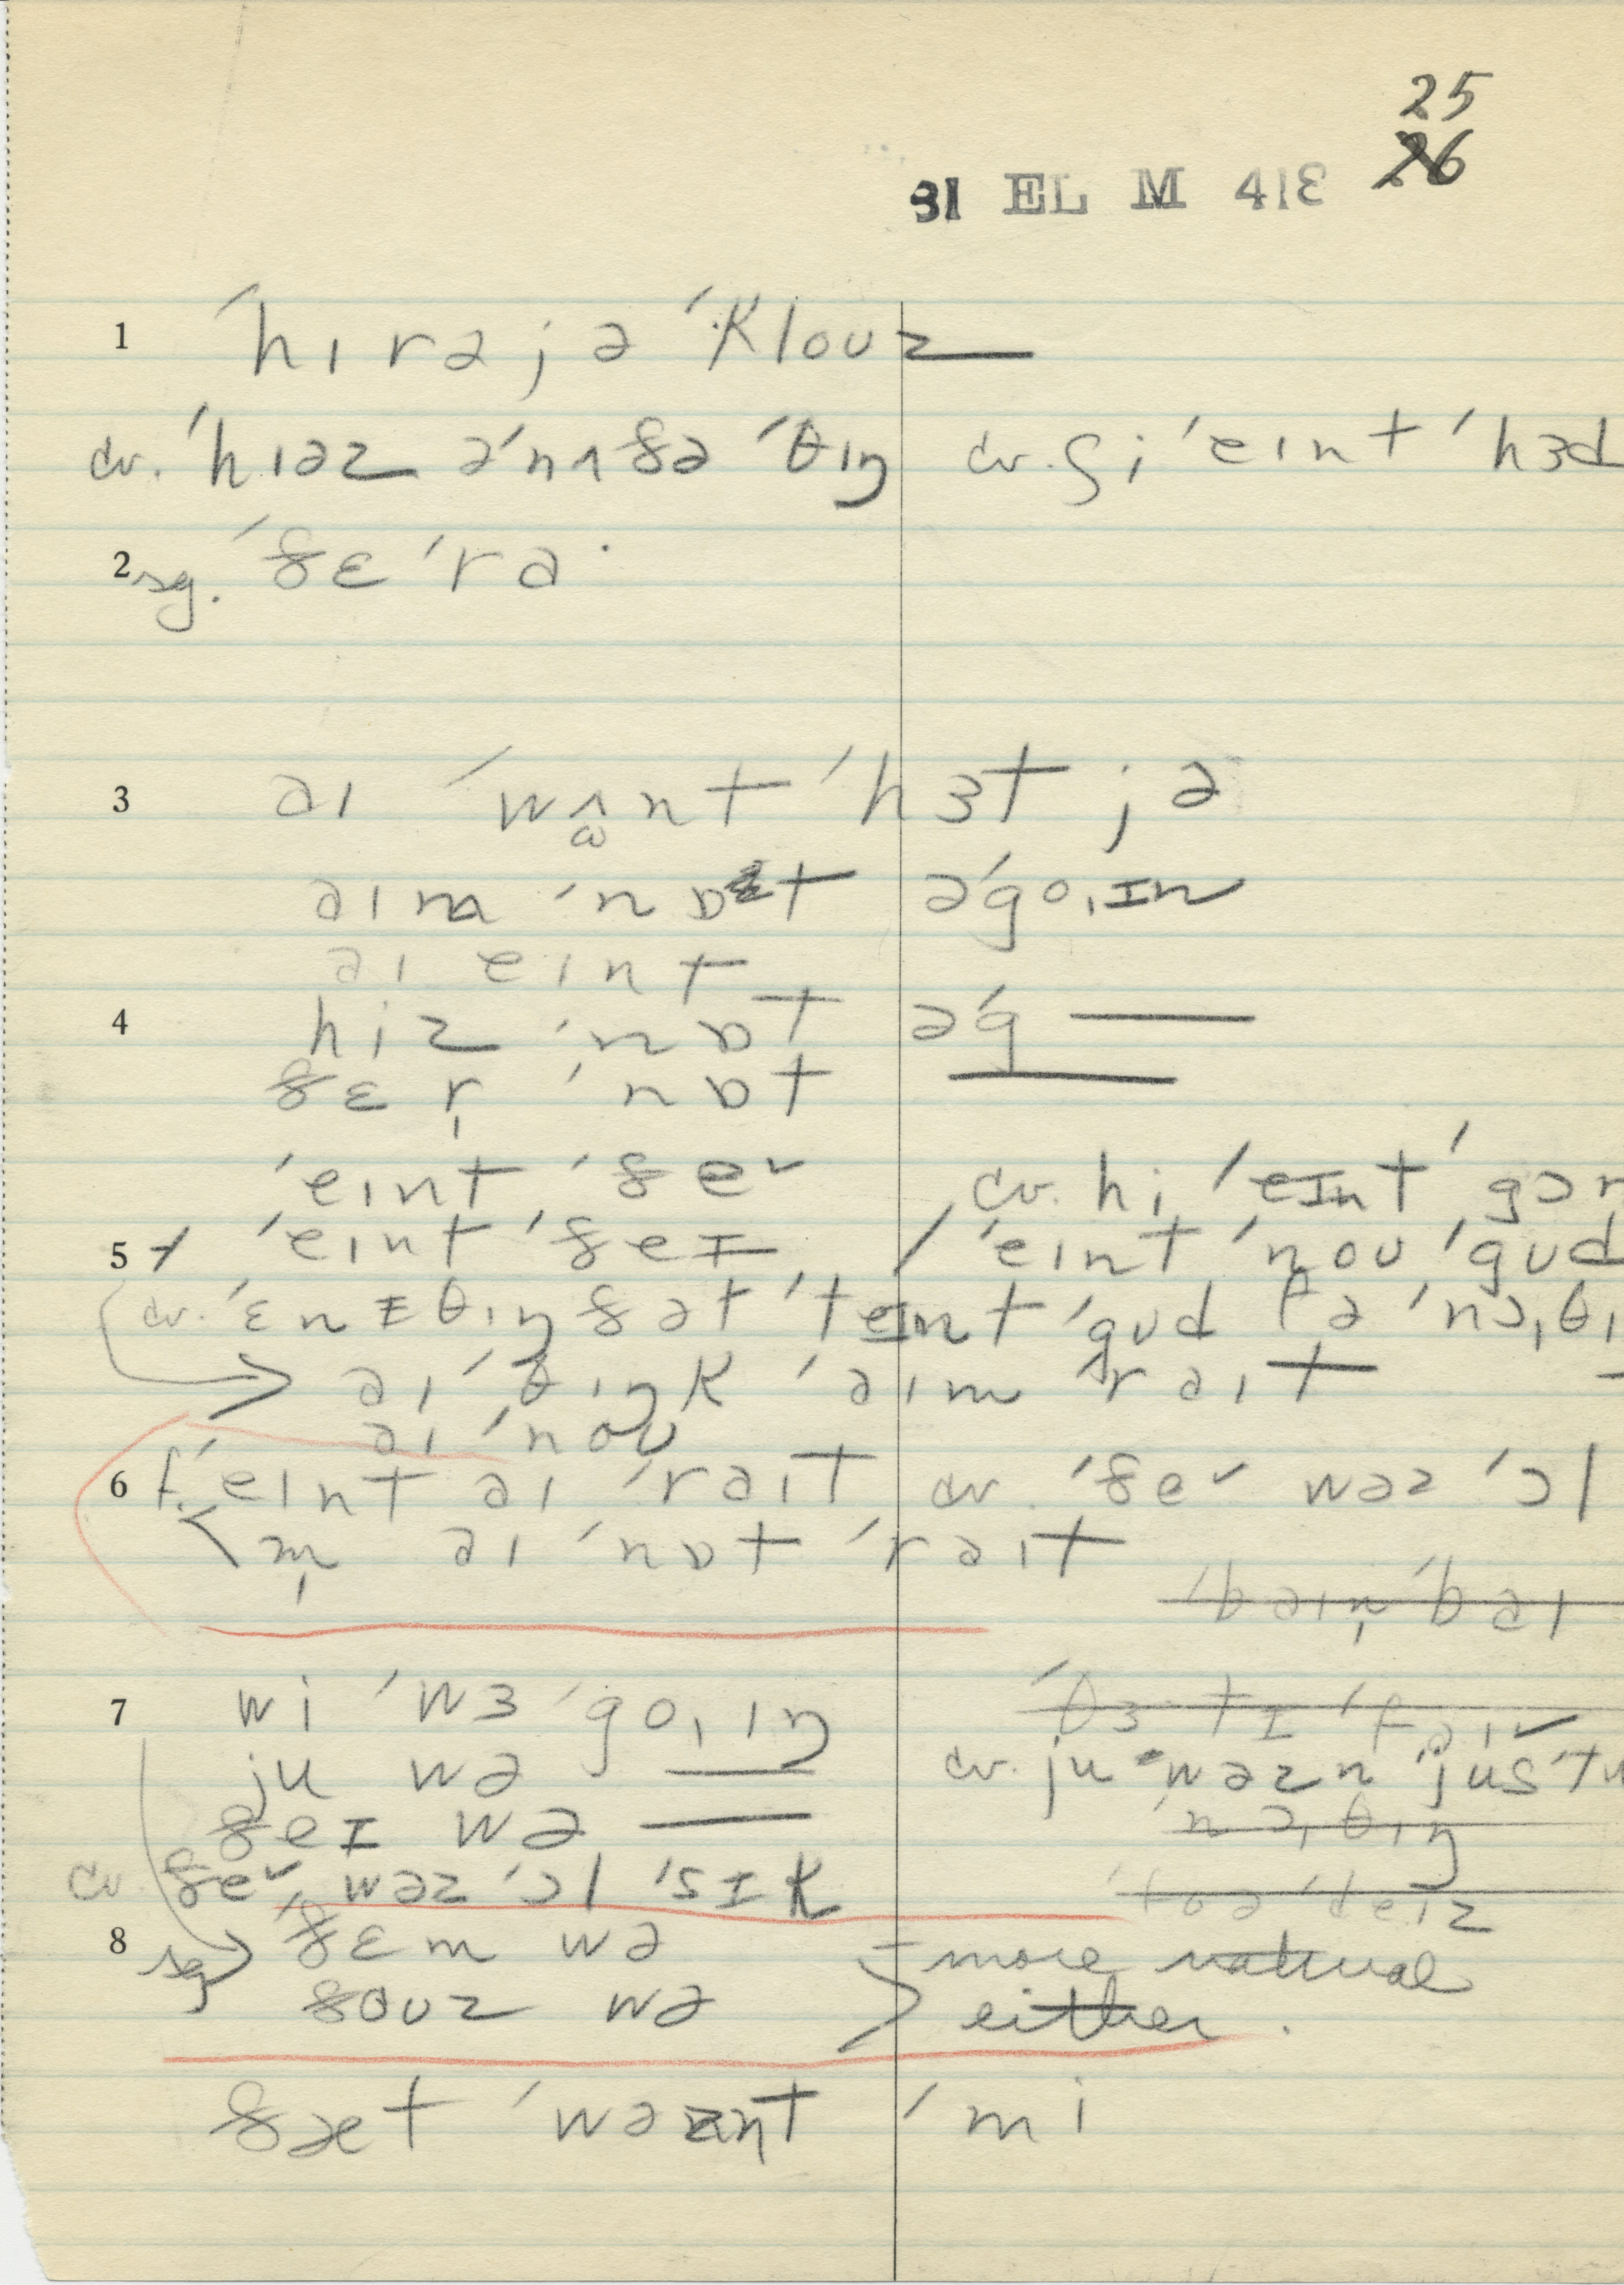 25
26
81 EL M 413
1 ˈhɪrəjə ˈklouz
cv. ˈhɪəz əˈnʌðə ˈθɪŋ cv. ʃi ˈeɪnt ˈhɜd
2 sg. ˈðɛˈrə
3 aɪ ˈwʌnt ˈhɜt jə
aɪm ˈnɒt əˈgo,ɪn
aɪ eɪnt
4 hiz ˈnɒt əˈg
ðɛr ˈnɒt
ˈeɪnt ˈðeˇ cv. hi ˈeɪnt ˈgɔr
5 ˈeɪnt ˈðeɪ / ˈeɪnt ˈnou ˈgud
cv. ˈɛnɪθɪŋ ðət ˈteɪnt ˈgud fə ˈnɔ,θɪ
aɪ ˈθɪŋk ˈaɪm ˈraɪt
aɪ ˈnou
6 f. ˈeɪnt aɪ ˈraɪt cv. ˈðeˇ wəz ˈɔl
m̩ aɪ ˈnɒt ˈraɪt
ˈbaɪn̩ ˈbaɪ
7 wi ˈwɜ ˈgo,ɪŋ
ju wə cv. ju ˈwəzn ˈjusˈtu
ðeɪ wə nɔ,θɪŋ
cv ðeˇ wəz ˈɔl ˈsɪk
8 sg ˈðɛm wə more natural
ðouz wə either.
ðæt ˈwəznt ˈmi